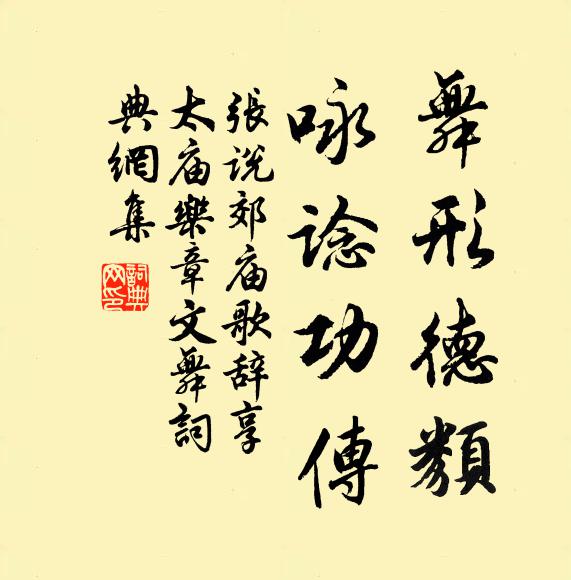 舞形德類
咏諗功傳
張說郊庙歌辞享
太庙樂章文舞詞
典網集
詞典网印